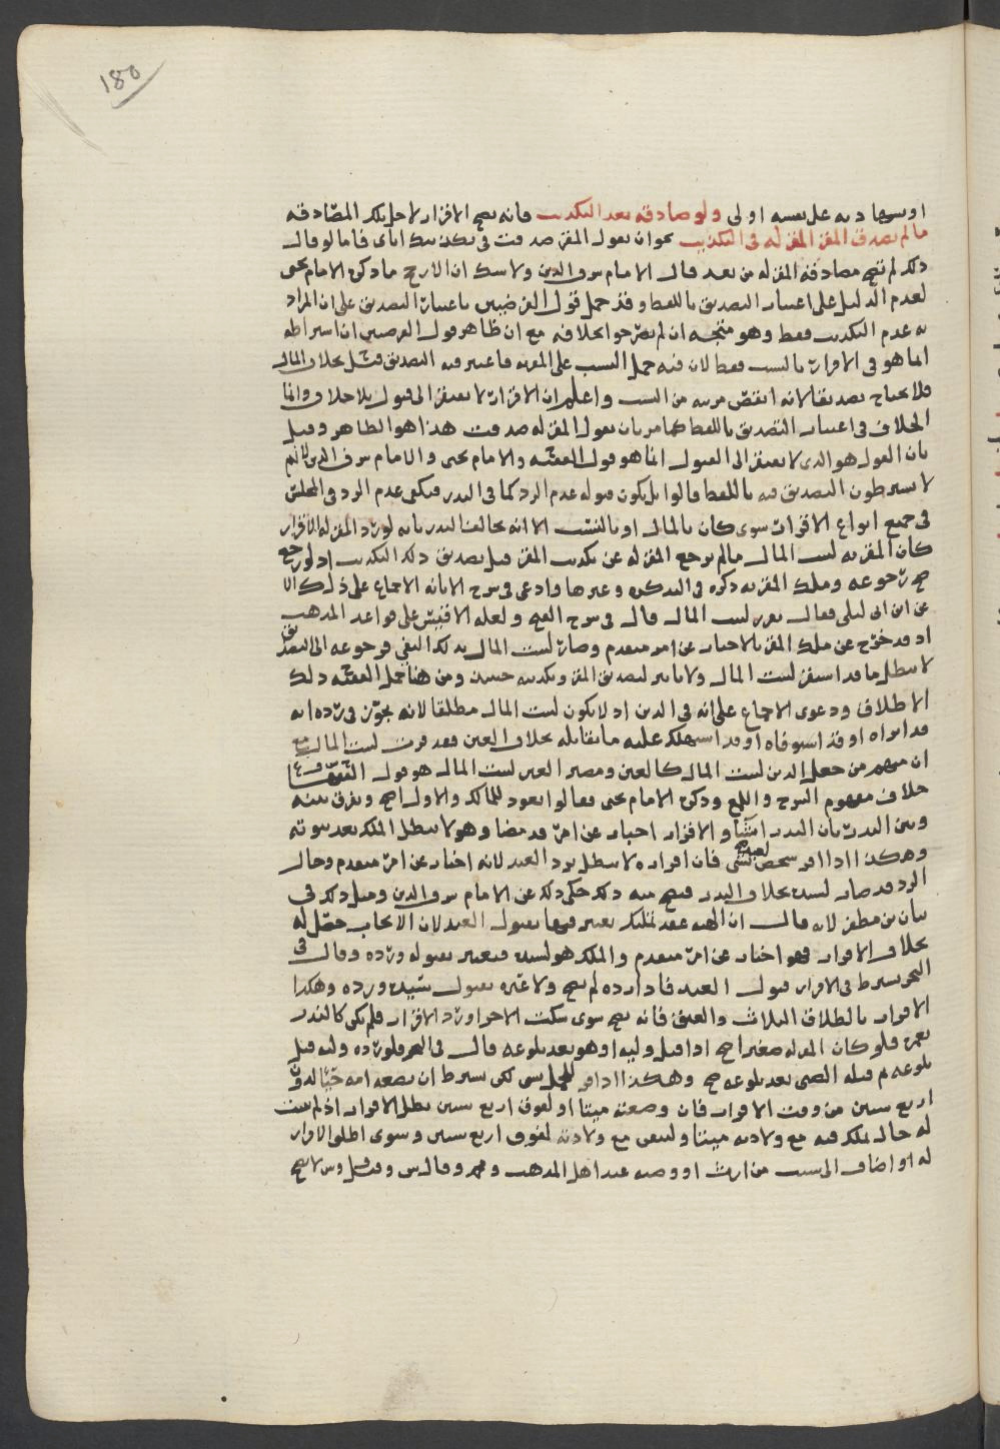 180
او بشهادته على نفسه اولى ولو صادقه بعد التكذيب فانه يصح الاقرار لاجل تلك المصادقه
ما لم يصدق المقر المقر له في التكذيب نحو ان يقول المقر صدقت في تكذيبك اياي فاما لو قال
ذلك لم تصح مصادقة المقر له من بعد قال الامام شرف الدين ولا شك ان الارجح ما ذكره الامام يحيى
لعدم الدليل على اعتبار التصديق باللفظ وقد حمل قول الفرضيين باعتبار التصديق على ان المراد
به عدم التكذيب فقط وهو متجه ان لم يصرحوا بخلافه مع ان ظاهر قول الفرضيين ان اشتراطه
انما هو في الاقرار بالنسب فقط لان فيه حمل النسب على المقر به فاعتبر فيه التصديق بخلاف المال
فلا يحتاج تصديقا لانه انقص مرتبه من النسب واعلم ان الاقرار لا يفتقر الى قبول بلا خلاف وانما
الخلاف في اعتبار التصديق باللفظ كما مر بان يقول المقر له صدقت هذا هو الظاهر وقيل
بان القول هو الذي لا يفتقر الى القبول انما هو قول الفقهاء والامام يحيى والامام شرف الدين لانهم
لا يشترطون التصديق فيه باللفظ قالوا بل يكون قبوله عدم الرد كما في النذر فيكفي عدم الرد في المجلس
في جميع انواع الاقرارات سوى كان بالمال او بالنسب الا انه يخالف النذر بانه لو رد المقر له الاقرار
كان المقر به لبيت المال ما لم يرجع المقر له عن تكذيب المقر قبل تصديق ذلك التكذيب اذ لو رجع
صح رجوعه وملك المقر به ذكره في التذكرة وغيرها وادعى في شرح الابانه الاجماع على ذلك الا
عن ابن ابي ليلى فقال يقر لبيت المال قال في شرح الفتح ولعله الاقيس على قواعد المذهب
اذ قد خرج عن ملك المقر بالاخبار عن امر متقدم وصار لبيت المال بذلك النفي فرجوعه الى التصديق
لا يبطل ما قد استقر لبيت المال ولا تاثير لتصديق المقر وتكذيبه حينئذ ومن هنا حمل الفقيه ذلك
الاطلاق ودعوى الاجماع على انه في الدين اذ لا يكون لبيت المال مطلقا لانه يجوز في رده انه
قد ابراه او قد استوفاه او قد استهلك عليه ما يقابله بخلاف العين فقد قرت لبيت المال مع
ان منهم من جعل الدين لبيت المال كالعين ومصير العين لبيت المال هو قول الفقهاء
خلاف مفهوم الشرح واللمع وذكره الامام يحيى فقالوا يعود للمالك والاول اصح ويفرق بينه
وبين النذر بان النذر انشا والاقرار اخبار عن امر قد مضا وهو لا يبطل الملك بعد ثبوته
وهكذا اذا اقر شخص لعبد بشي فان اقراره لا يبطل برد العبد لانه اخبار عن امر متقدم وحال
الرد قد صار لسيده بخلاف النذر فيصح منه ذلك حكي ذلك عن الامام شرف الدين ومثل ذلك في
بيان بن مظفر لانه قال ان الهبه عقد تمليك يعتبر فيها بقبول العبد لان الايجاب حصل له
بخلاف الاقرار فهو اخبار عن امر متقدم والملك هو لسيده فيعتبر بقبوله ورده وقال في
البحر يشترط في الاقرار قبول العبد فاذا رده لم يصح ولا عبره بقبول سيده ورده وهكذا
الاقرار بالطلاق الثلاث والعتق فانه يصح سوى سكت الاخر او رد الاقرار فلم يكن كالنذر
نعم فلو كان المقر له صغيرا صح اذا قبل وليه او هو بعد بلوغه قال في البحر فلو رده وليه قبل
بلوغه ثم قبله الصبي بعد بلوغه صح وهكذا اذا اقر للحمل بشي لكن بشرط ان تضعه امه حيا لدون
اربع سنين من وقت الاقرار فان وضعته ميتا او لفوق اربع سنين بطل الاقرار اذ لم يثبت
له حال يملك فيه مع ولادته ميتا ولنفي مع ولادته لفوق اربع سنين وسوى اطلق الاقرار
له او اضاف الى سبب من ارث او وصيه عند اهل المذهب وقيل وس لا يصح